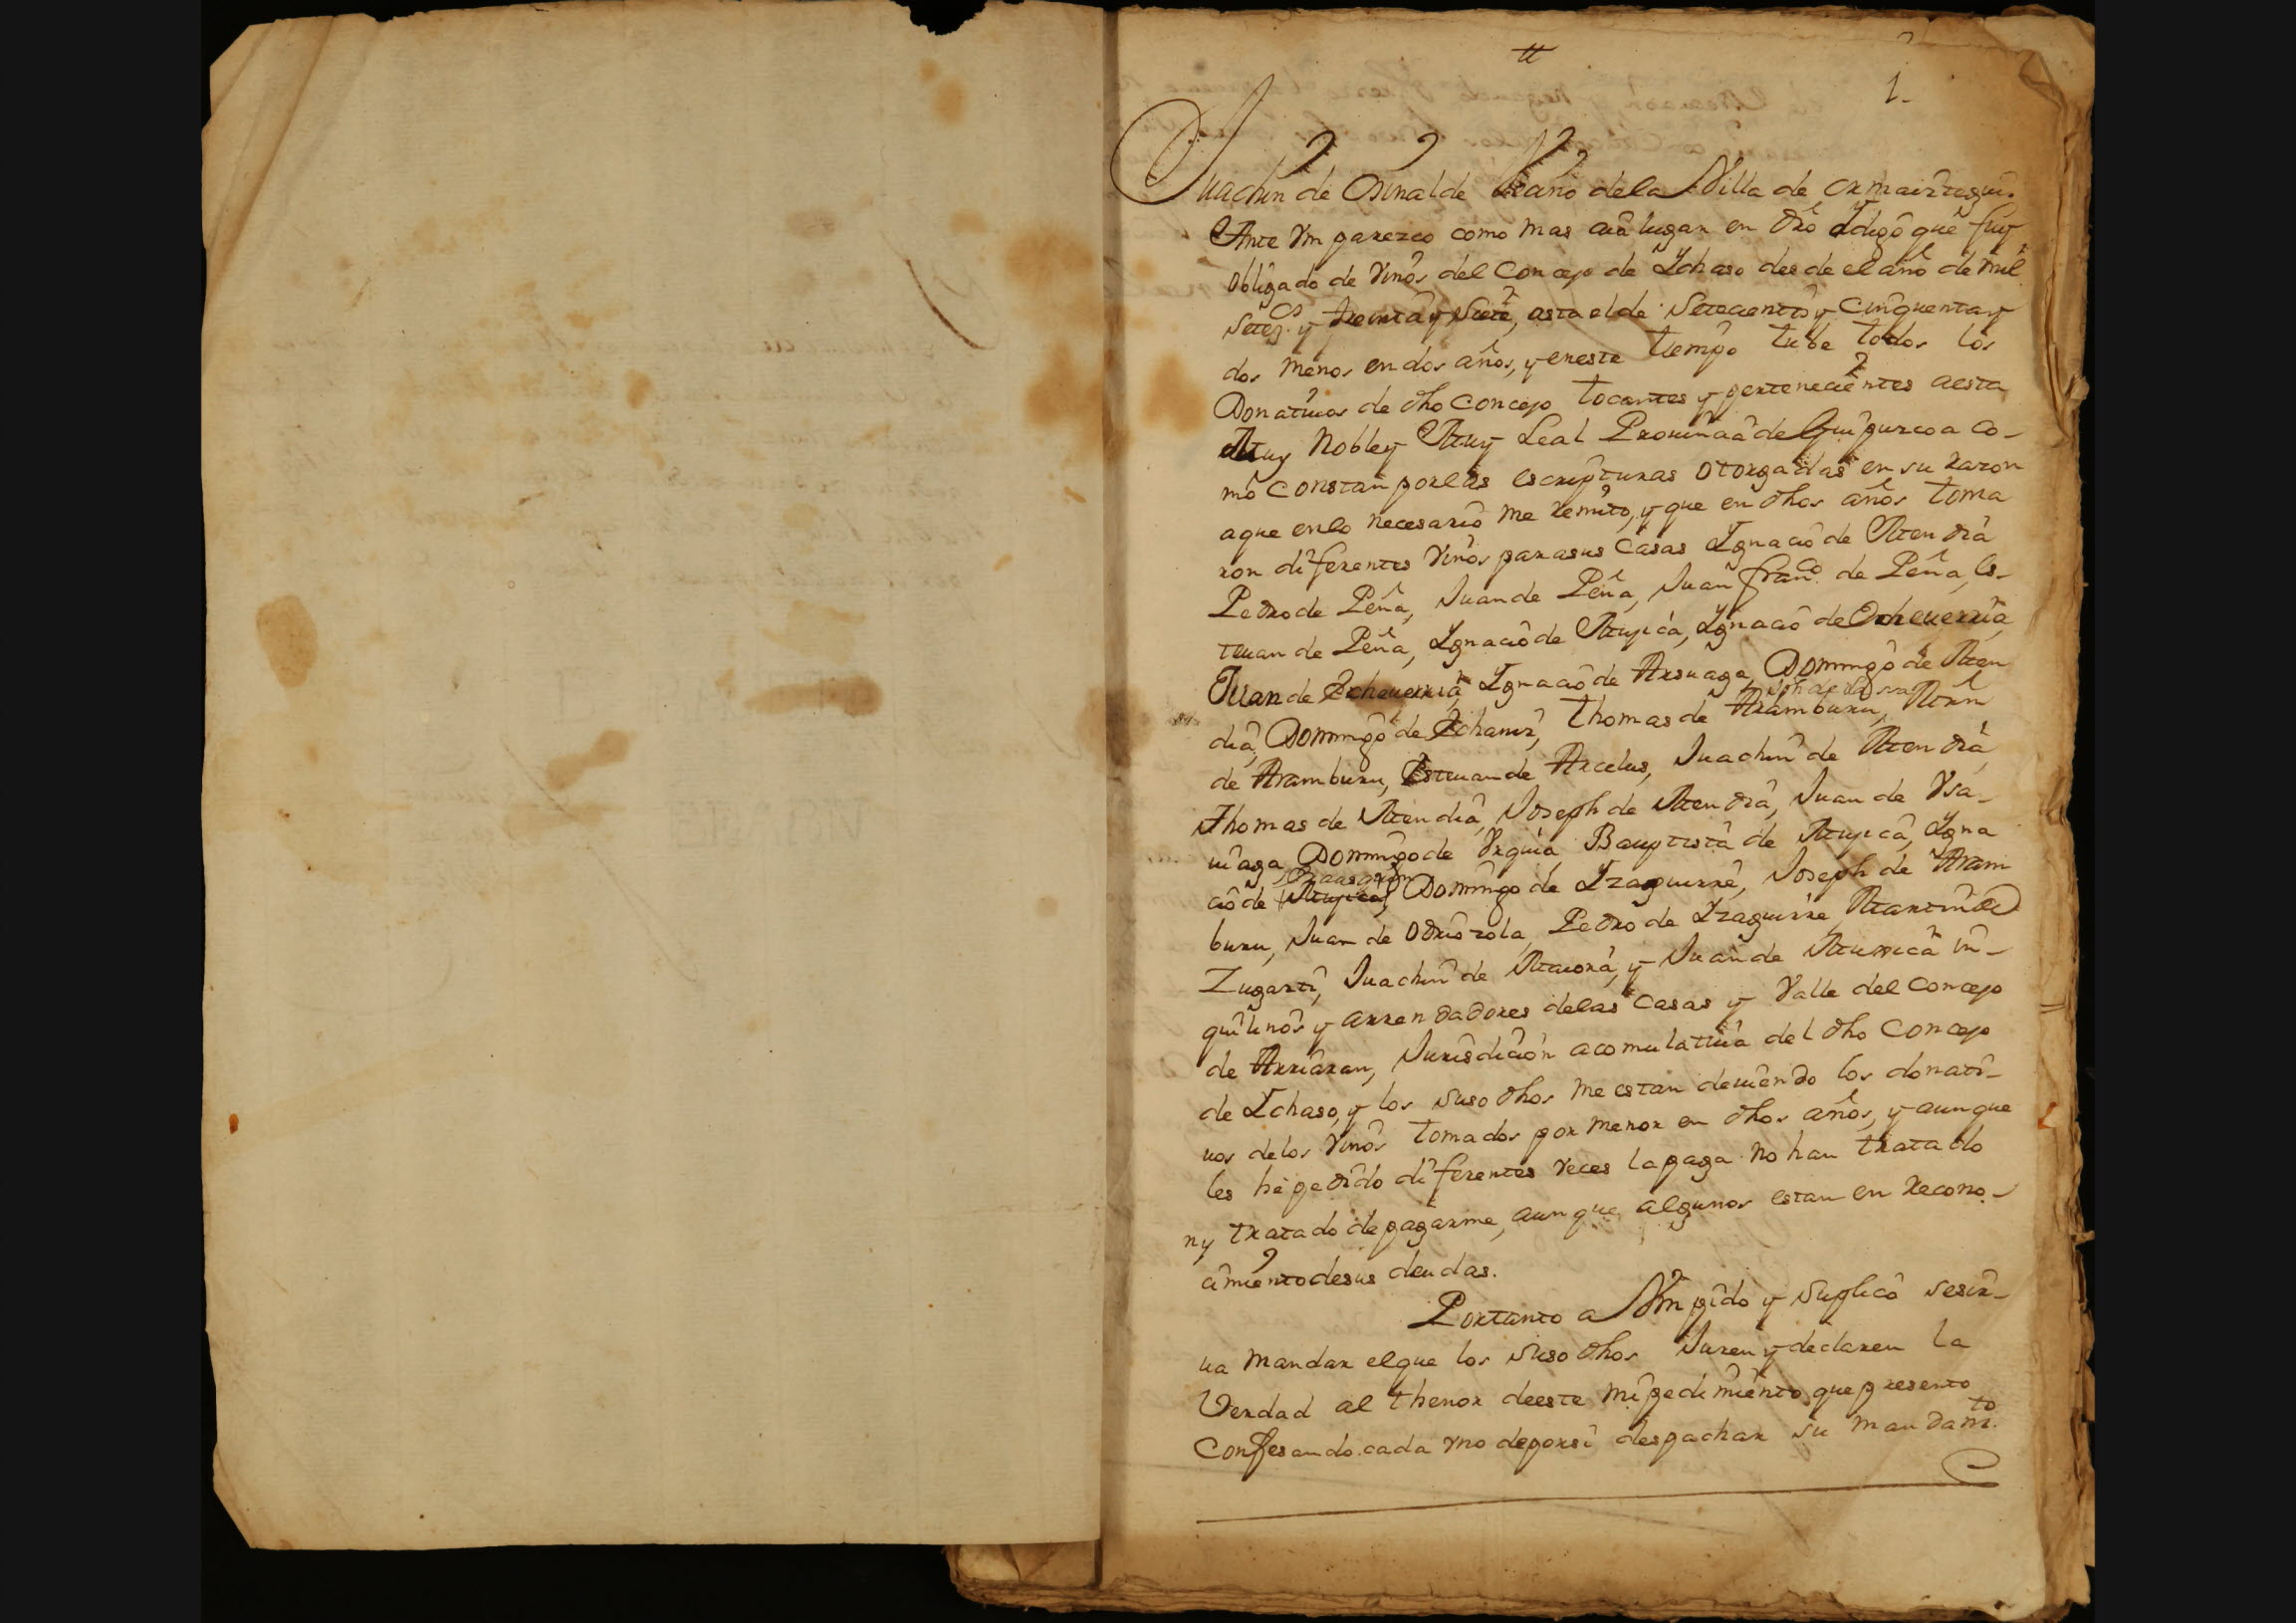 tt
1.
Juachin de Osinalde Vezno dela Villa de ormaiztegui.
Ante Vm parezco como mas aia lugar en dro Y digo que fuy
obligado de vinos del Concejo de Ychaso desde el año de mil
Setezos. y treinta y siete, asta el de Setecientos y Cinquenta y
dos menos en dos años, y eneste tiempo tube todos los
Donatiuos de dho Concejo tocantes y pertenecientes aesta
Muy Nobley Muy Leal Prouincia de Guipuzcoa co-
mo constan porlas escripturas otorgadas en su razon
aque enlo necesario me remito, y que en dhos años toma
ron diferentes vinos parasus Casas Ygnacio de Mendia
Pedro de Peña, Juan de Peña, Juan franco. de Peña, Es-
teuan de Peña, Ygnacio de Mujica, Ygnacio de Echeuerria,
Juan de Echeuerria, Ygnacio de Arsuaga, Domingo de Men
dia, Domingo de Echaniz, Thomas de Aramburu, Mrn
de Aramburu, Esteuan de Arcelus, Juachin de Mendia,
Thomas de Mendia, Joseph de Mendia, Juan de Vsa-
uiaga Domingo de Vrquia Bauptista de Mujica, Ygna
cio de Mujica, Domingo de Yzaguirre, Joseph de Aram
buru, Juan de Odriozola, Pedro de Yzaguirre, Martin de
Zugasti, Juachin de Maiora, y Juan de Mussica in-
quilinos y arrendadores delas Casas y Valle del Concejo
de Arriaran, Jurisdicion acomulatiua del dho Concejo
de Ychaso, y los suso dhos me estan deuiendo los donati-
uos delos Vinos tomados por menor en dhos años, y aunque
les he pedido diferentes veces la paga no han tratado
ny tratado de pagarme, aunque algunos estan en recono-
cimiento desus deudas.
Portanto a Vm pido y suplico sesir-
ua mandar elque los suso dhos Juren y declaren la
Verdad al thenor deeste mi pedimiento que presento
Confesando cada vno deporsi despachar su mandamto.